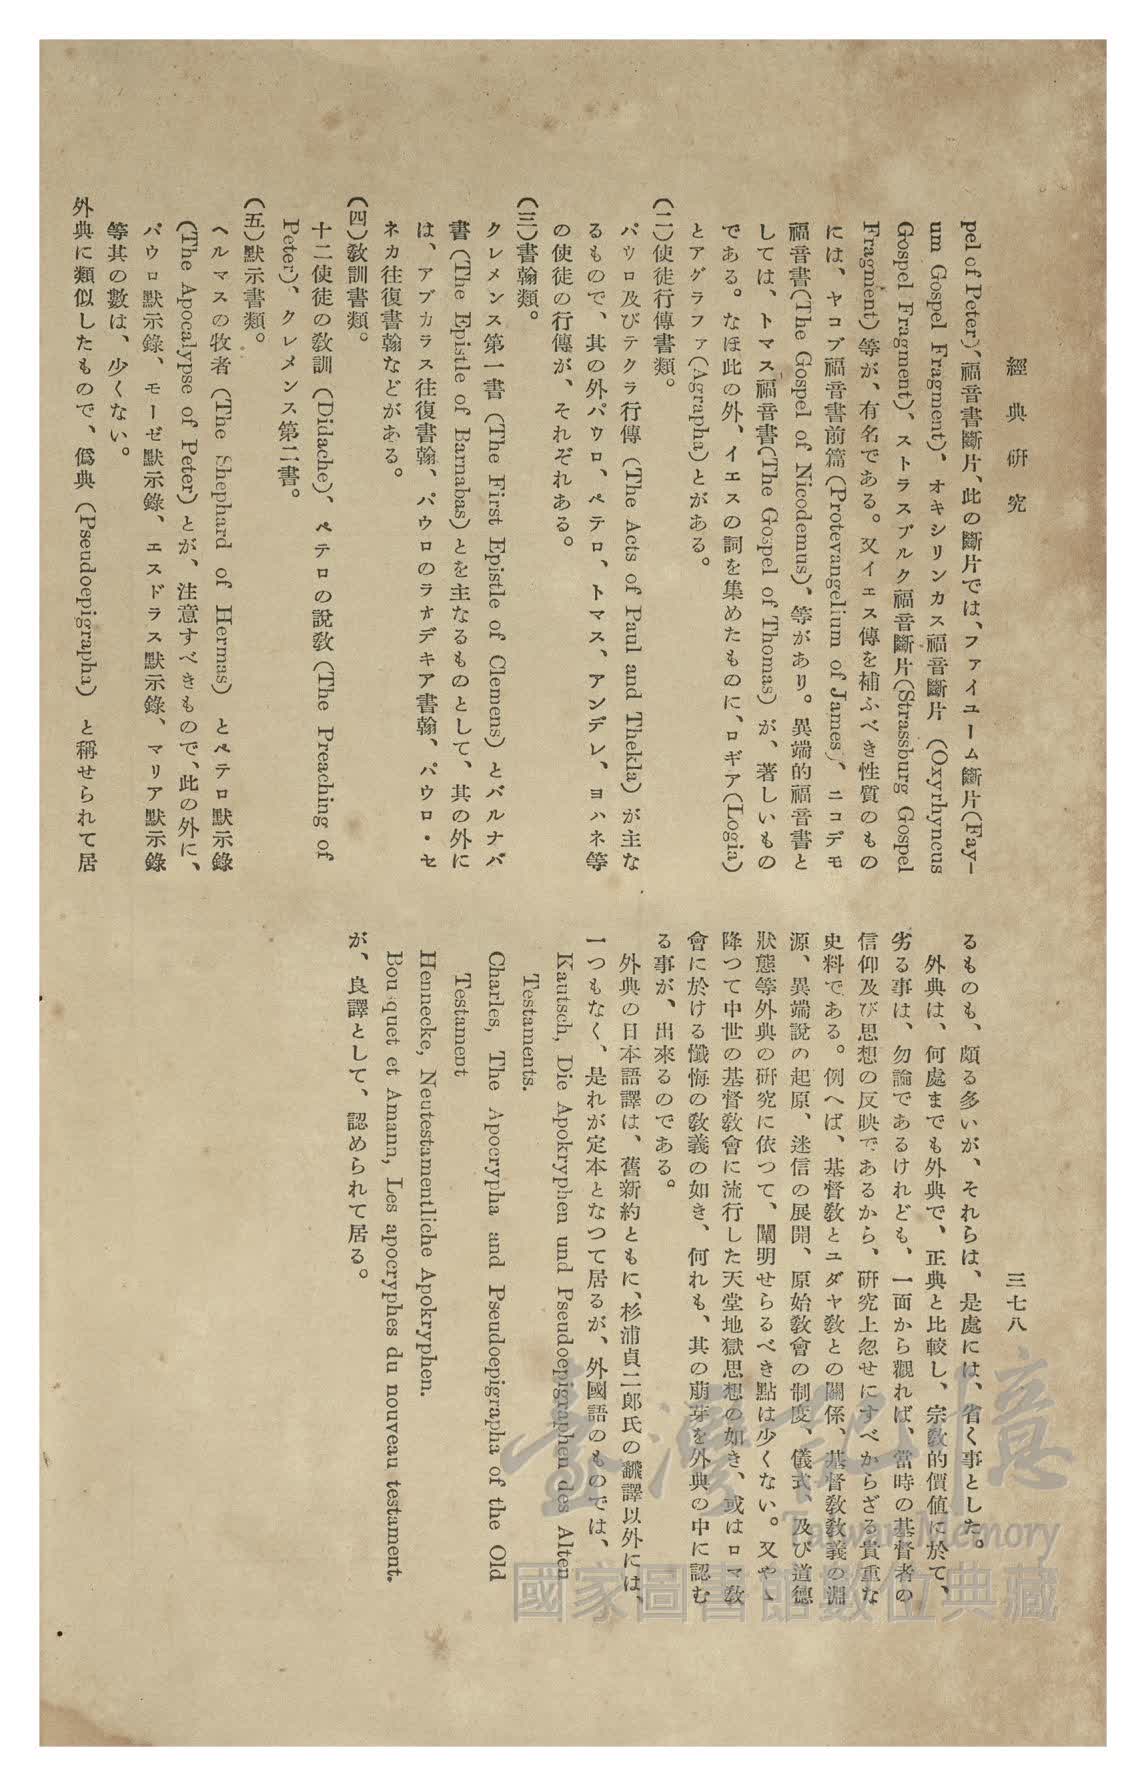 經典研究
三七八
pel of Peter)、福音書斷片、此の斷片では、ファイユーム斷片(Fay-
um Gospel Fragment)、オキシリンカス福音斷片 (Oxyrhyncus
Gospel Fragment)、ストラスブルク福音斷片(Strassburg Gospel
Fragment)等が、有名である。又イエス傳を補ふべき性質のもの
には、ヤコブ福音書前篇(Protevangelium of James)、ニコデモ
福音書(The Gospel of Nicodemus)、等があり。異端的福音書と
しては、トマス福音書(The Gospel of Thomas) が、著しいもの
である。なほ此の外、イエスの詞を集めたものに、ロギア(Logia)
とアグラファ(Agrapha)とがある。
(二)使徒行傳書類。
パウロ及びテクラ行傳 (The Acts of Paul and Thekla) が主な
るもので、其の外パウロ、ペテロ、トマス、アンデレ、ヨハネ等
の使徒の行傳が、それぞれある。
(三)書翰類。
クレメンス第一書 (The First Epistle of Clemens) とバルナバ
書(The Epistle of Barnabas)とを主なるものとして、其の外に
は、アブガラス往復書翰、パウロのラオデキア書翰、パウロ・セ
ネカ往復書翰などがある。
(四)敎訓書類。
十二使徒の敎訓 (Didache)、ペテロの說敎(The Preaching of
Peter)、クレメンス第二書。
(五)默示書類。
ヘルマスの牧者 (The Shephard of Hermas) とペテロ默示錄
(The Apocalypse of Peter)とが、注意すべきもので、此の外に、
パウロ默示錄、モーゼ默示錄、エスドラス默示錄、マリア默示錄
等其の數は、少くない。
外典に類似したもので、僞典(Pseudoepigrapha) と稱せられて居
るものも、頗る多いが、それらは、是處には、省く事とした。
外典は、何處までも外典で、正典と比較し、宗敎的價値に於て、
劣る事は、勿論であるけれども、一面から觀れば、當時の基督者の
信仰及び思想の反映であるから、硏究上忽せにすべからざる貴重な
史料である。例へば、基督敎とユダヤ敎との關係、基督敎敎義の淵
源、異端說の起原、迷信の展開、原始敎會の制度、儀式、及び道德
狀態等外典の硏究に依つて、闡明せらるべき點は少くない。又やゝ
降つて中世の基督敎會に流行した天堂地獄思想の如き、或はロマ敎
會に於ける懺悔の敎義の如き、何れも、其の萠芽を外典の中に認む
る事が、出來るのである。
外典の日本語譯は、舊新約ともに、杉浦貞二郞氏の飜譯以外には、
一つもなく、是れが定本となつて居るが、外國語のものでは、
Kautsch, Die Apokryphen und Pseudoepigraphen des Alten
Testaments.
Charles, The Apocrypha and Pseudoepigrapha of the Old
Testament
Hennecke, Neutestamentliche Apokryphen.
Bou quet et Amann, Les apocryphes du nouveau testament.
が、良譯として、認められて居る。
臺灣記憶
Taiwan Memory
國家圖書館數位典藏